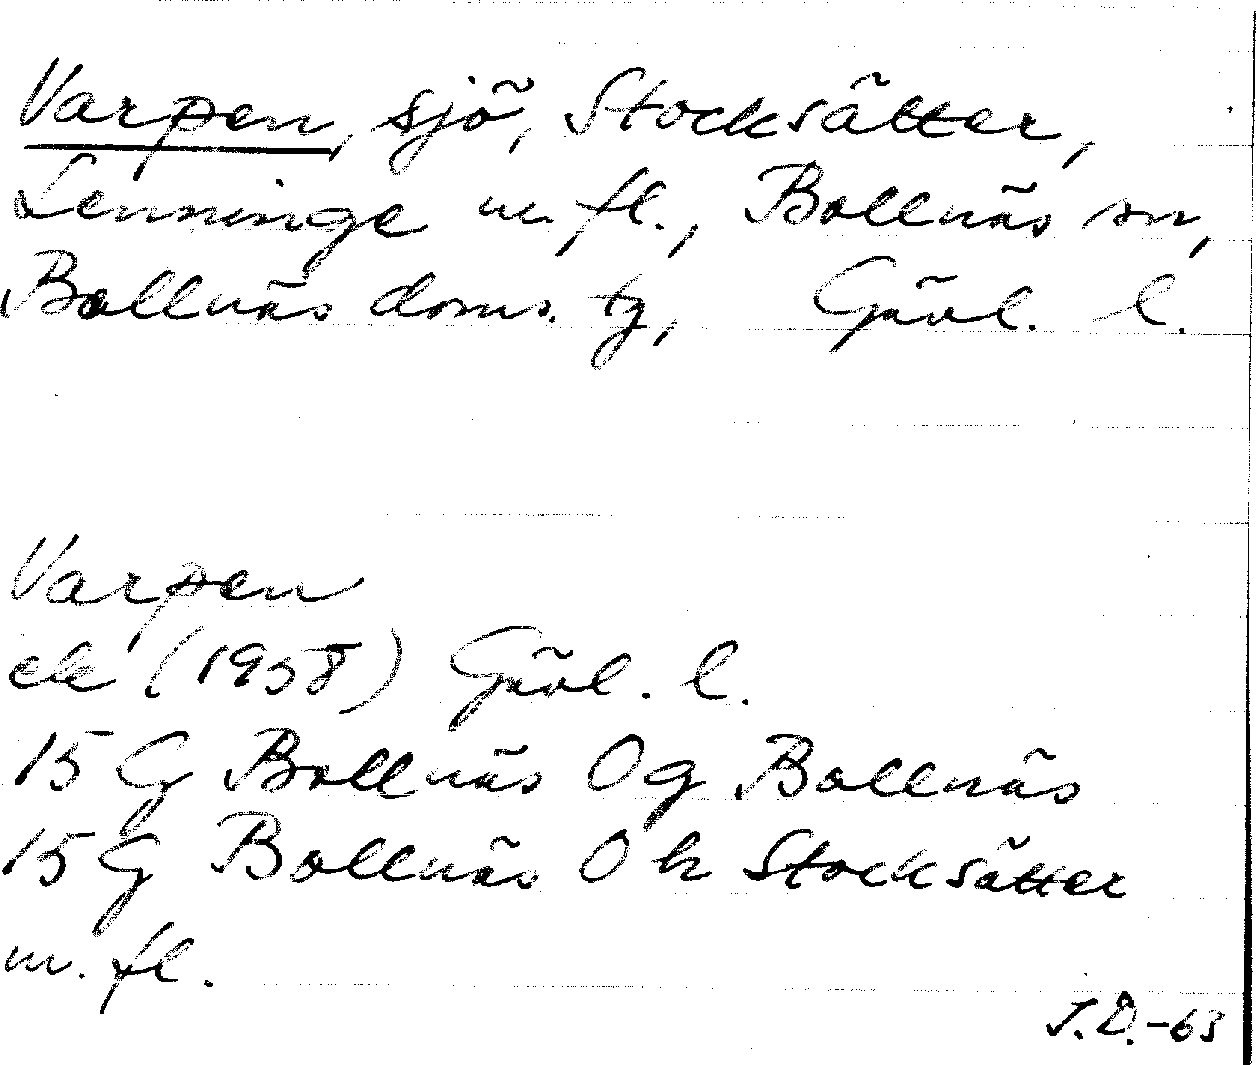 Varpen, sjö, Stocksätter,
Lenninge m. fl., Bollnäs sn,
Bollnäs doms. tg, Gävl. l.
Varpen
ek (1958) Gävl. l.
15 G Bollnäs Og Bollnäs
15 G Bollnäs Oh Stocksätter
m. fl.
-63